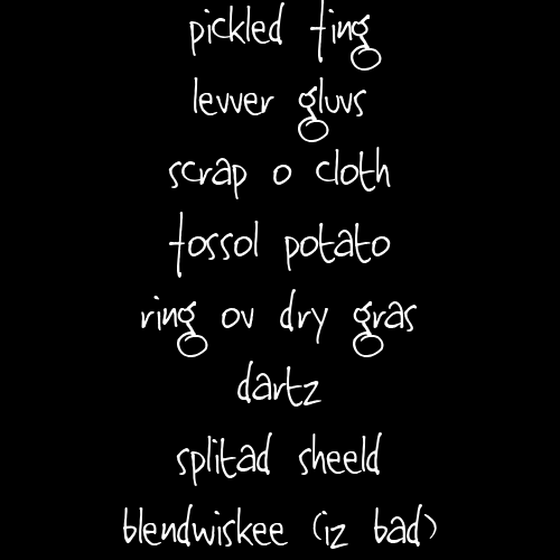 pickled ting
levver gluvs
scrap o cloth
tossol potato
ring ov dry gras
dartz
splitad sheeld
blendwiskee (iz bad)